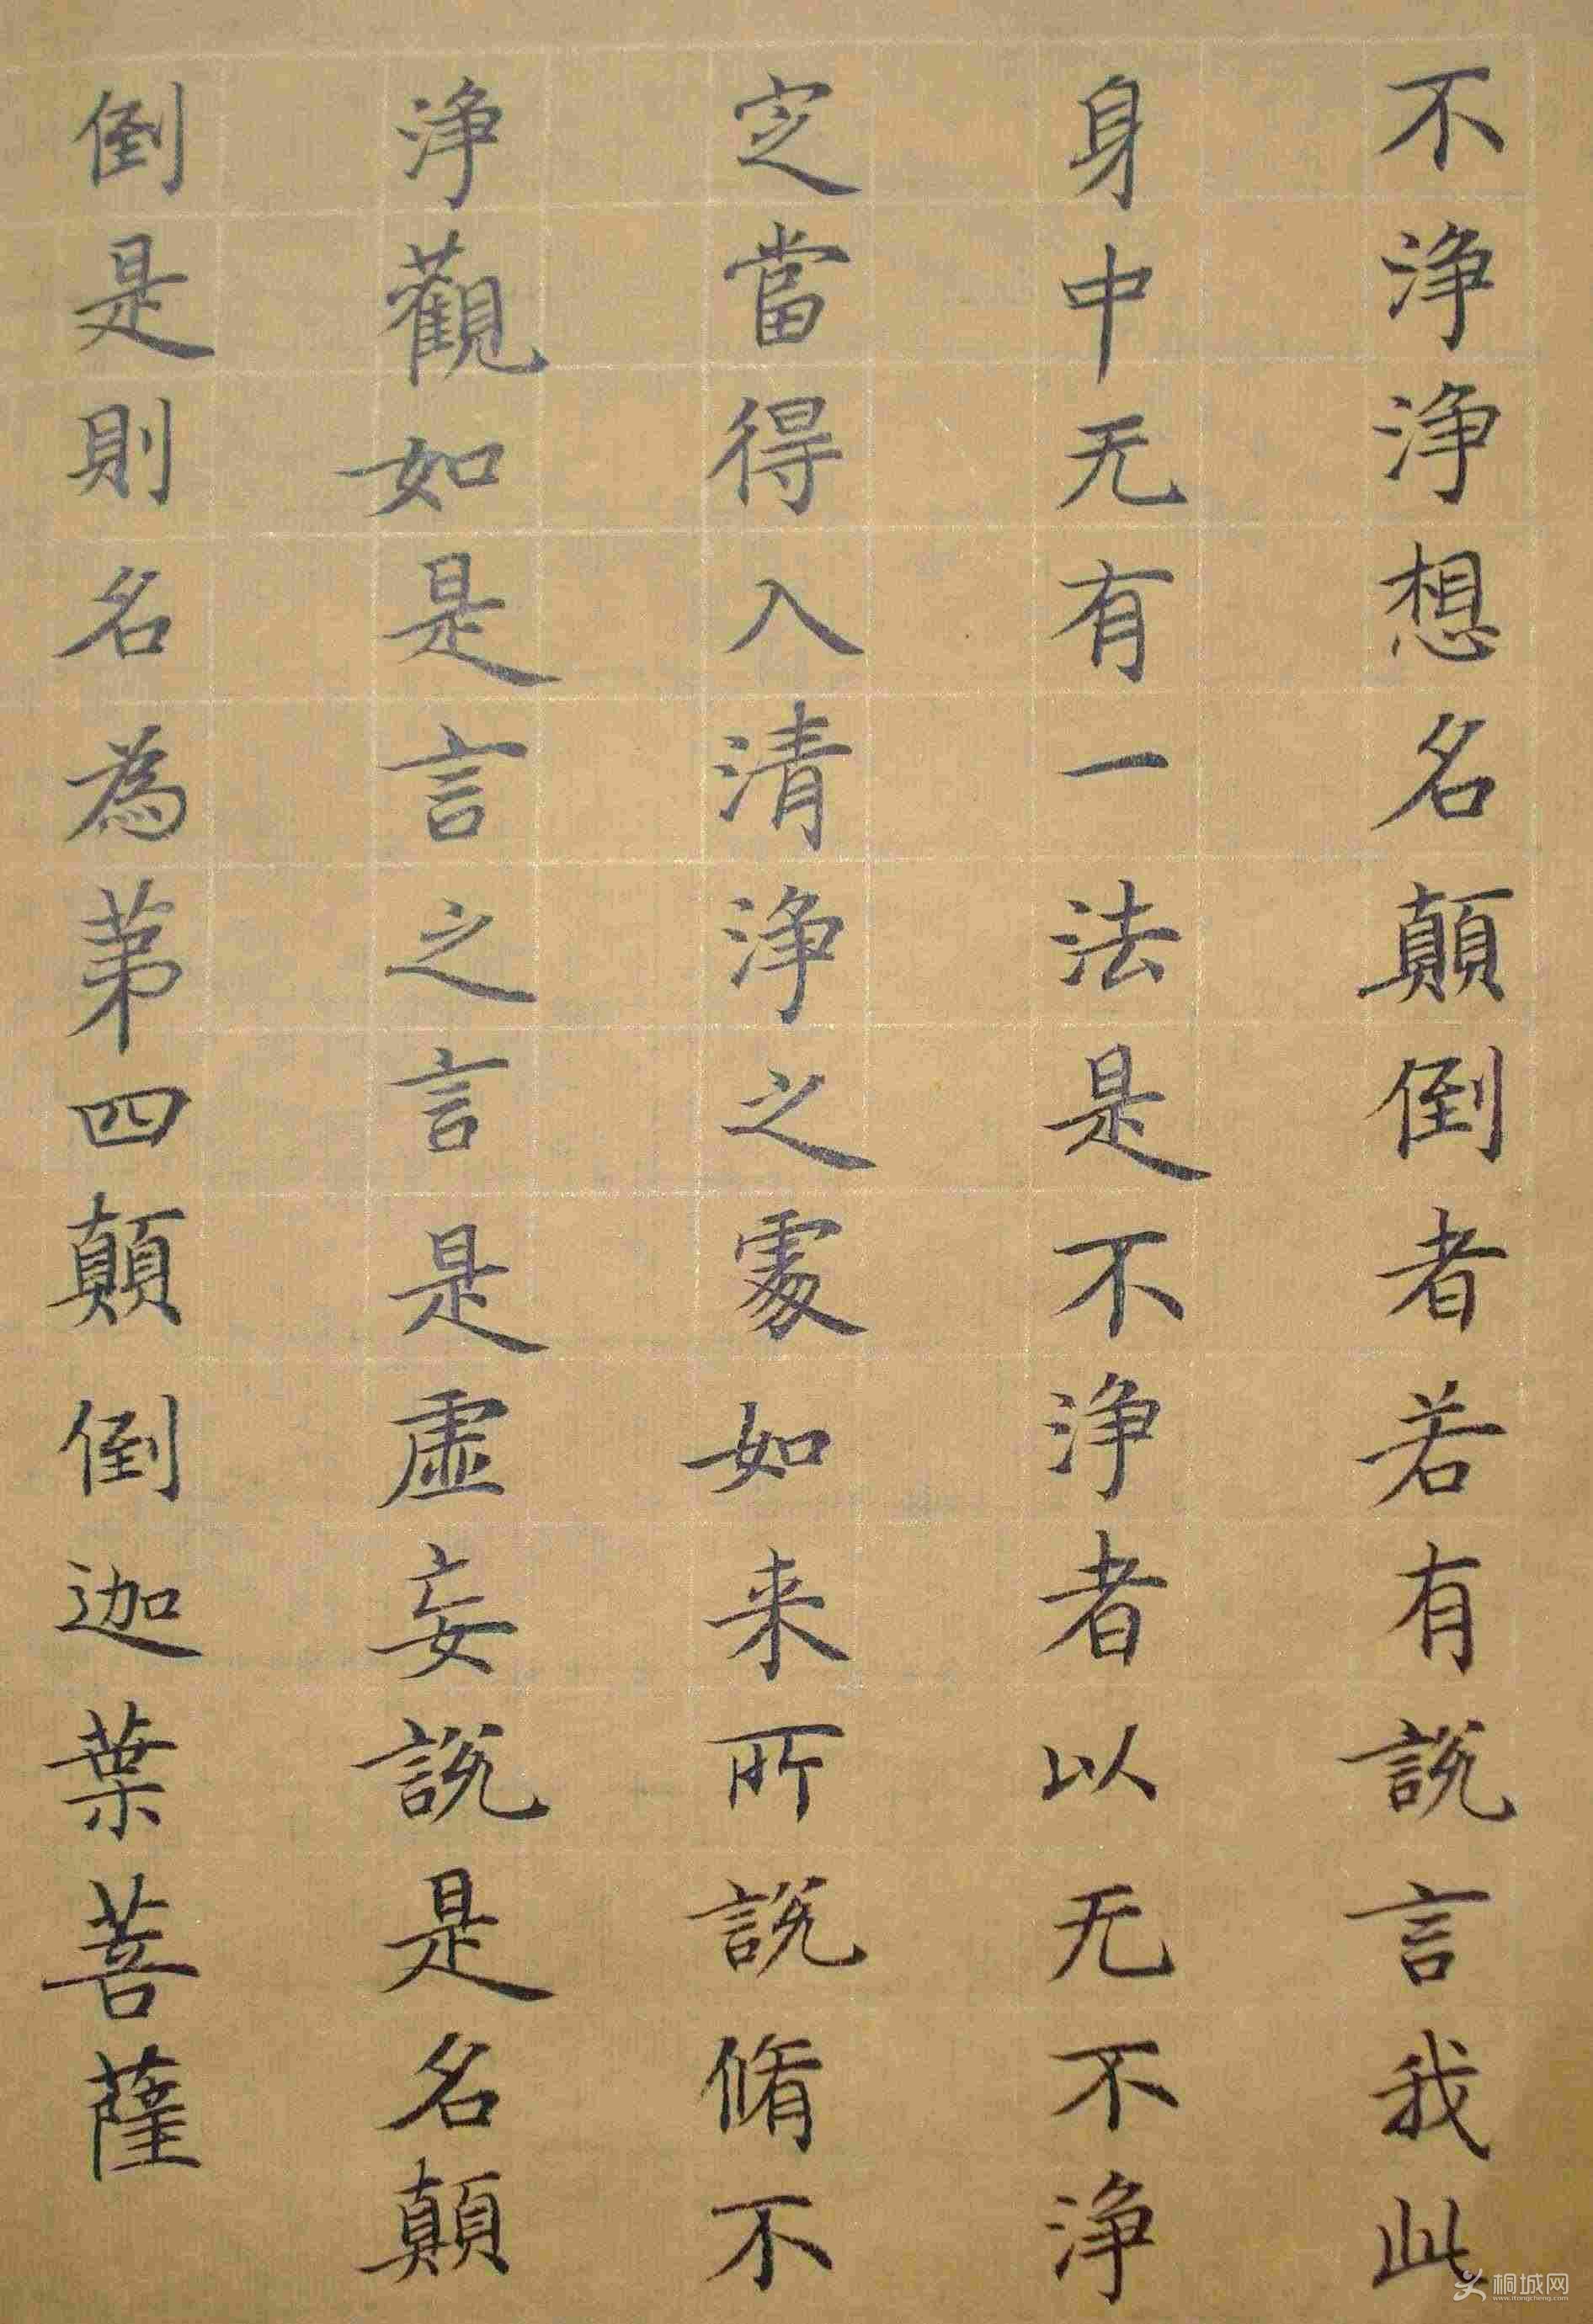 不淨淨想名顛倒者若有說言我此
身中无有一法是不淨者以无不淨
定當得入清淨之處如来所說脩不
淨觀如是言之言是虛妄說是名顛
倒是則名為苐四顛倒迦葉菩薩
桐城网
www.itongcheng.com